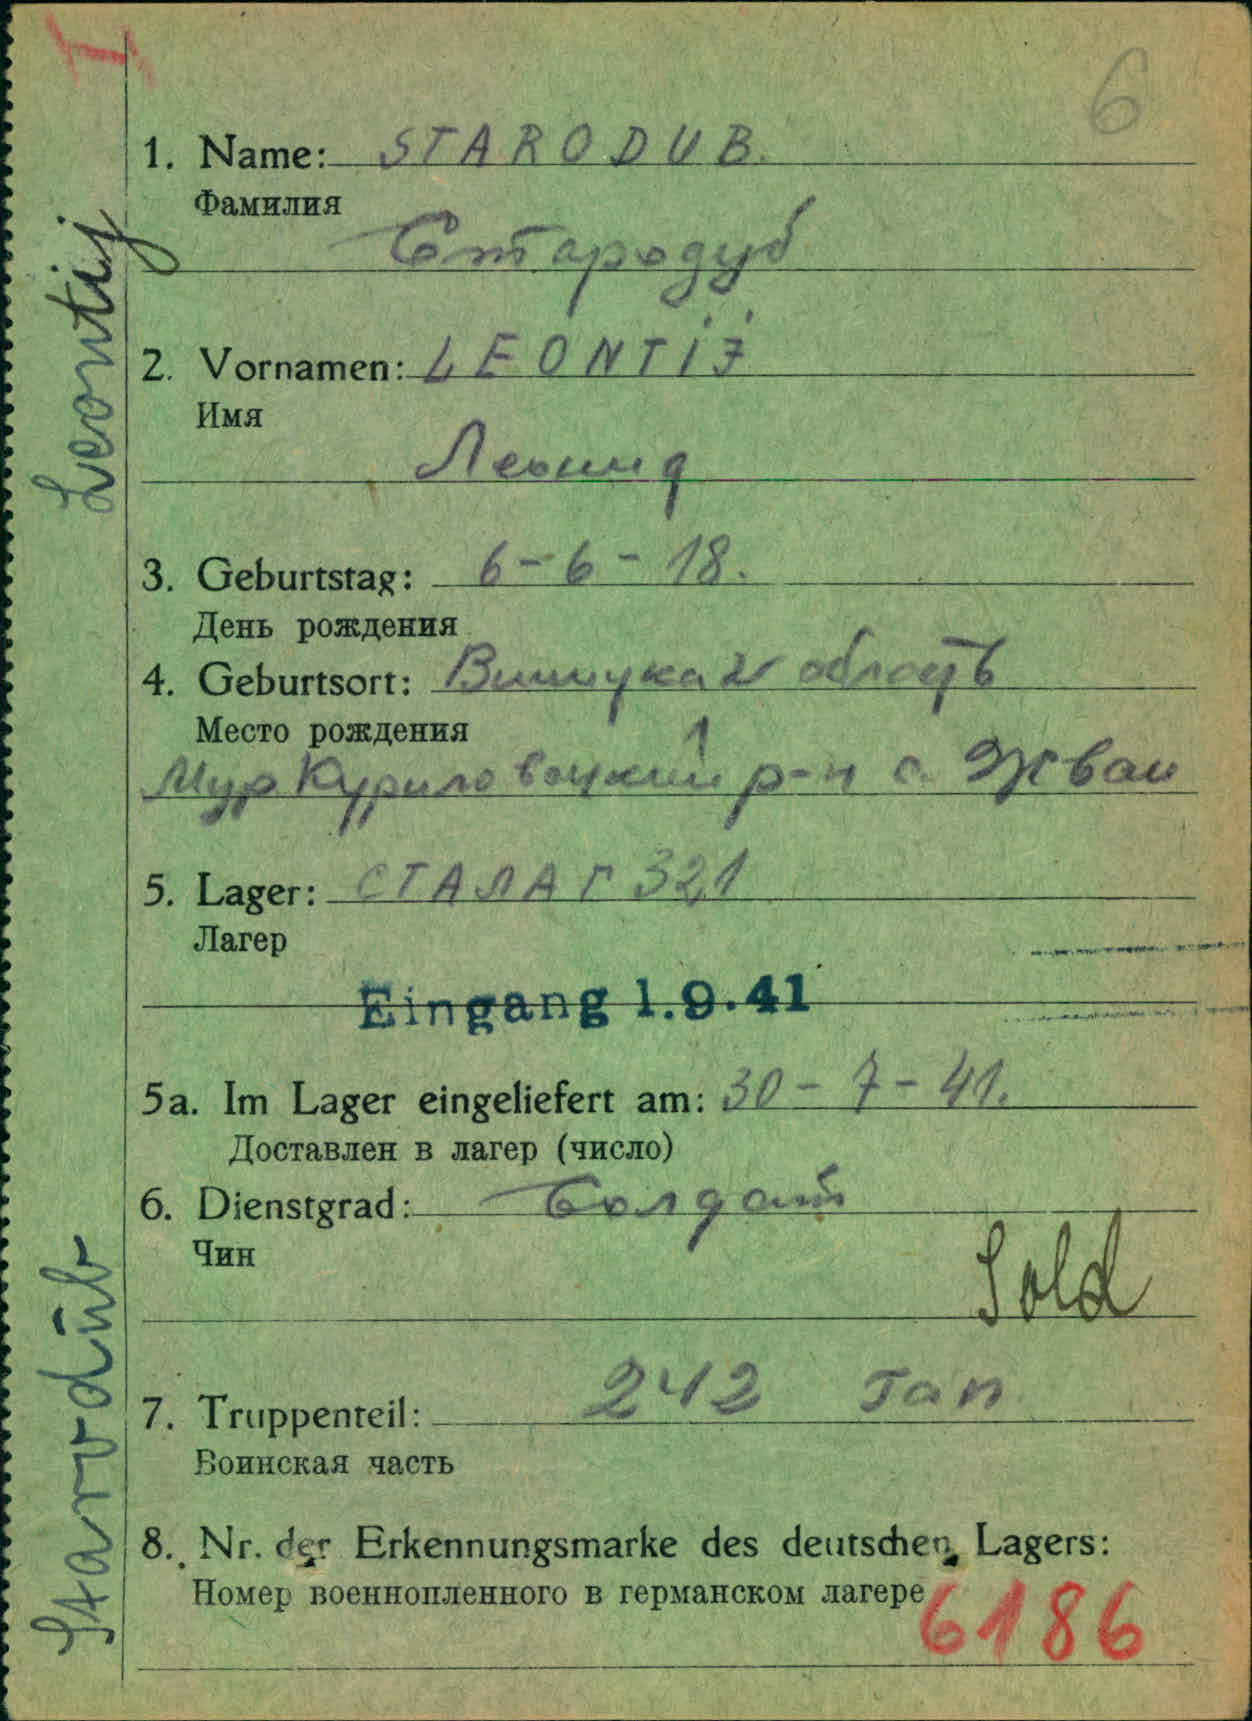 6
1. Name: STARODUB.
Фамилия
Стародуб
2. Vornamen: LEONTIJ
Имя
Леонид
3. Geburtstag: 6-6-18.
День рождения
4. Geburtsort: область
Место рождения
МурКуриловецкий р-н с. Жван
5. Lager: СТАЛАГ 321
Лагер
Eingang 1.9.41
5a. Im Lager eingeliefert am: 30-7-41.
Доставлен в лагер (число)
6. Dienstgrad: Солдат
Чин
Sold
7. Truppenteil: 242 гап
Воинская часть
8. Nr. der Erkennungsmarke des deutschen Lagers:
Номер военнопленного в германском лагере
6186
Starodub Leontij